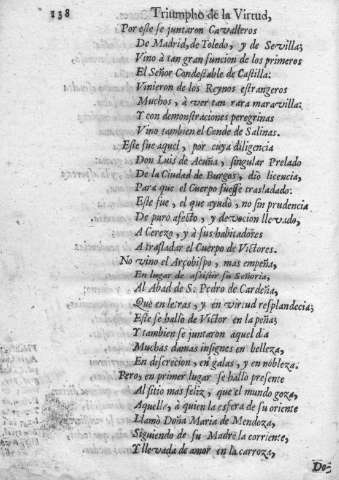 138 Triumpho de la Virtud,
Por este se juntaron Cavalleros
De Madrid, de Toledo, y de Sevilla;
Vino à tan gran funcion de los primeros
El Señor Condestable de Castilla:
Vinieron de los Reynos estrangeros
Muchos, à vèr tan rara maravilla:
Y con demonstraciones peregrinas
Vino tambien el Conde de Salinas.
Este fue aquel, por cuya diligencia
Don Luis de Acuña, singular Prelado
De la Ciudad de Burgos, diò licencia,
Para que el Cuerpo fuesse trasladado:
Este fue, el que ayudò, no sin prudencia
De puro afecto, y devocion llevado,
A Cerezo, y à sus habitadores
A trasladar el Cuerpo de Victores.
No vino el Arçobispo, mas empeña,
En lugar de assistir su Señoria,
Al Abad de S. Pedro de Cardeña,
Que en letras, y en virtud resplandecia;
Este se hallò de Victor en la peña;
Y tambien se juntaron aquel dia
Muchas damas insignes en belleza,
En discrecion, en galas, y en nobleza.
Pero, en primer lugar se hallò presente
Al sitio mas feliz, que el mundo goza,
Aquella, à quien la esfera de su oriente
Llamò Doña Maria de Mendoza,
Siguiendo de su Madre la corriente,
Y llevada de amor en la carroza,
Do-